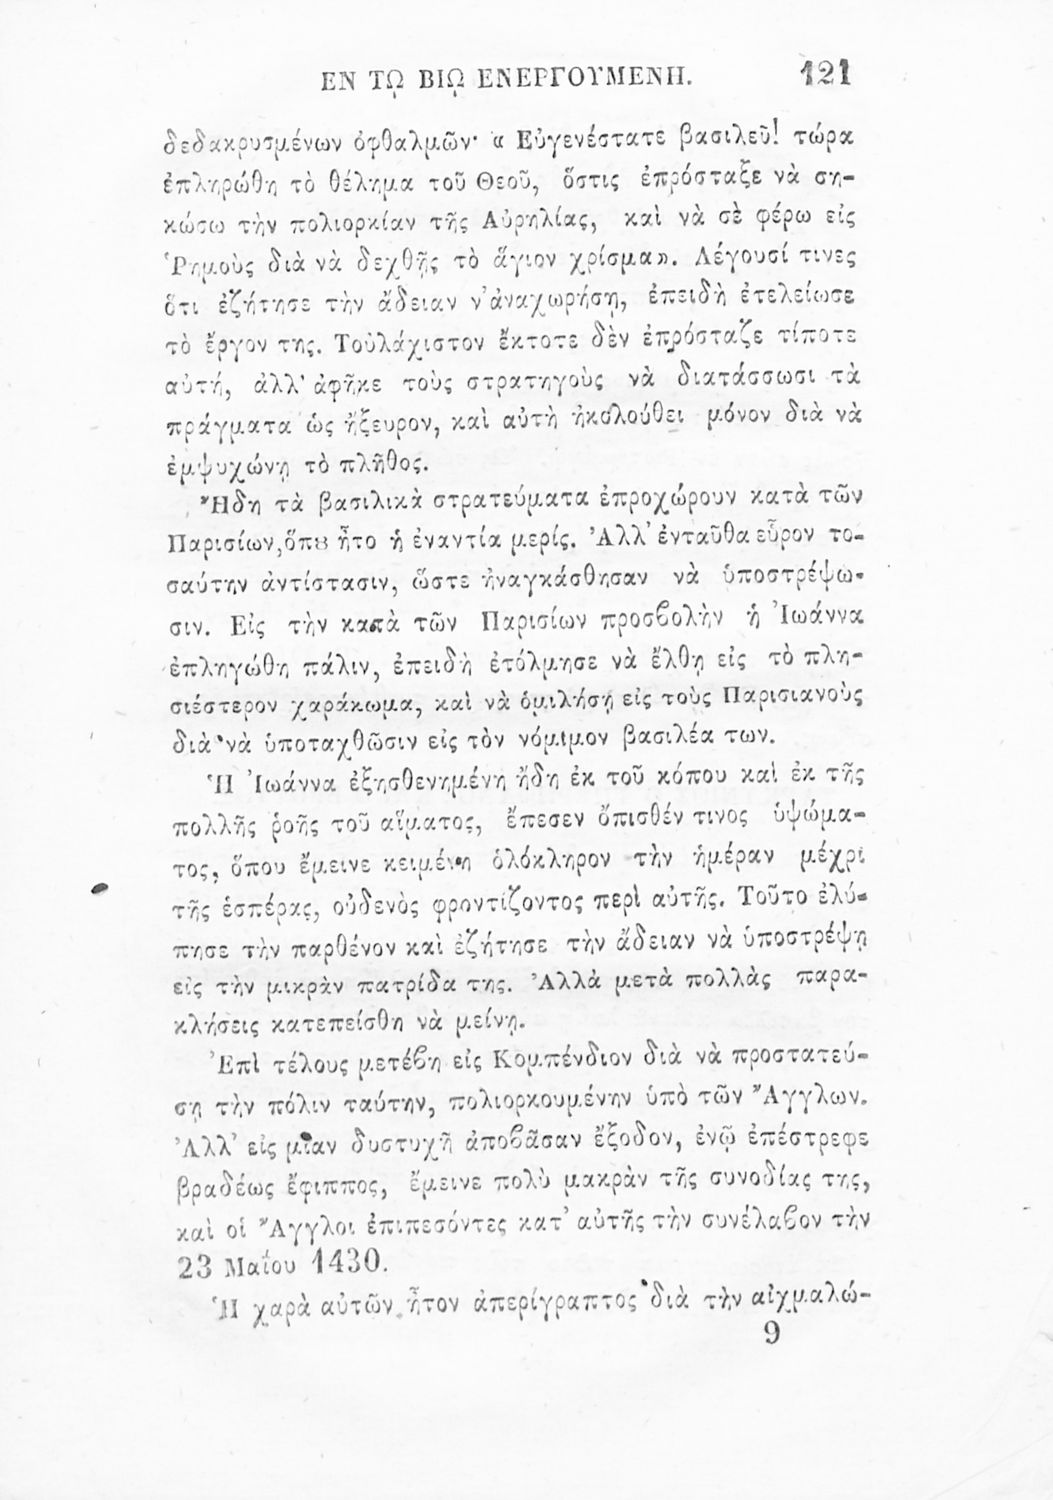 ΕΝ Τῼ ΒΙῼ ΕΝΕΡΓΟΥΜΕΝΗ. 121
δεδακρυσμένων ὀφθαλμῶν· « Εὐγενέστατε βασιλεῦ! τώρα
ἐπληρώθη τὸ θέλημα τοῦ Θεοῦ, ὅστις ἐπρόσταξε νὰ ση-
κώσω τὴν πολιορκίαν τῆς Αὐρηλίας, καὶ νὰ σὲ φέρω εἰς
Ῥημοὺς διὰ νὰ δεχθῇς τὸ ἅγιον χρίσμα». Λέγουσί τινες
ὅτι ἐζήτησε τὴν ἄδειαν ν’ ἀναχωρήσῃ, ἐπειδὴ ἐτελείωσε
τὸ ἔργον της. Τοὐλάχιστον ἔκτοτε δὲν ἐπρόσταζε τίποτε
αὐτή, ἀλλ’ ἀφῆκε τοὺς στρατηγοὺς νὰ διατάσσωσι τὰ
πράγματα ὡς ἤξευρον, καὶ αὐτὴ ἠκολούθει μόνον διὰ νὰ
ἐμψυχώνῃ τὸ πλῆθος.
Ἤδη τὰ βασιλικὰ στρατεύματα ἐπροχώρουν κατὰ τῶν
Παρισίων, ὅπȣ ἦτο ἡ ἐναντία μερίς. Ἀλλ’ ἐνταῦθα εὗρον το-
σαύτην ἀντίστασιν, ὥστε ἠναγκάσθησαν νὰ ὑποστρέψω-
σιν. Εἰς τὴν κατὰ τῶν Παρισίων προσβολὴν ἡ Ἰωάννα
ἐπληγώθη πάλιν, ἐπειδὴ ἐτόλμησε νὰ ἔλθῃ εἰς τὸ πλη-
σιέστερον χαράκωμα, καὶ νὰ ὁμιλήσῃ εἰς τοὺς Παρισιανοὺς
διὰ νὰ ὑποταχθῶσιν εἰς τὸν νόμιμον βασιλέα των.
Ἡ Ἰωάννα ἐξησθενημένη ἤδη ἐκ τοῦ κόπου καὶ ἐκ τῆς
πολλῆς ῥοῆς τοῦ αἵματος, ἔπεσεν ὄπισθέν τινος ὑψώμα-
τος, ὅπου ἔμεινε κειμένη ὁλόκληρον τὴν ἡμέραν μέχρι
τῆς ἑσπέρας, οὐδενὸς φροντίζοντος περὶ αὐτῆς. Τοῦτο ἐλύ-
πησε τὴν παρθένον καὶ ἐζήτησε τὴν ἄδειαν νὰ ὑποστρέψῃ
εἰς τὴν μικρὰν πατρίδα της. Ἀλλὰ μετὰ πολλὰς παρα-
κλήσεις κατεπείσθη νὰ μείνῃ.
Ἐπὶ τέλους μετέβη εἰς Κομπένδιον διὰ νὰ προστατεύ-
σῃ τὴν πόλιν ταύτην, πολιορκουμένην ὑπὸ τῶν Ἄγγλων.
Ἀλλ’ εἰς μίαν δυστυχῆ ἀποβᾶσαν ἔξοδον, ἐνῷ ἐπέστρεφε
βραδέως ἔφιππος, ἔμεινε πολὺ μακρὰν τῆς συνοδίας της,
καὶ οἱ Ἄγγλοι ἐπιπεσόντες κατ’ αὐτῆς τὴν συνέλαβον τὴν
23 Μαΐου 1430.
Ἡ χαρὰ αὐτῶν ἦτον ἀπερίγραπτος διὰ τὴν αἰχμαλώ-
9